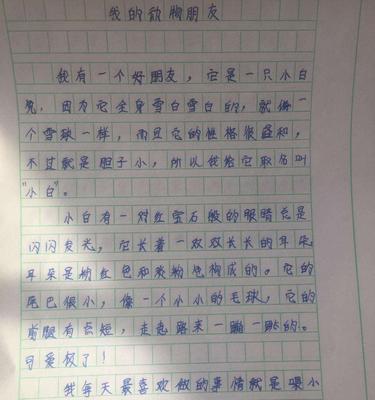 我的动物朋友
我有一个好朋友，它是一只小白
兔，因为它全身雪白雪白的，就像一
个雪球一样，而且它的性格很温和，
不过就是胆子小，所以我给它取名叫
"小白"。
小白有一对红宝石般的眼睛总是
闪闪发光，它长着一双双长长的耳朵
耳朵是粉红色和灰粉色构成的。它的
尾巴很小，像一个小小的毛球，它的
前腿有点短，走起路来一蹦一跳的。
可爱极了！
我每天最喜欢做的事情就是喂小